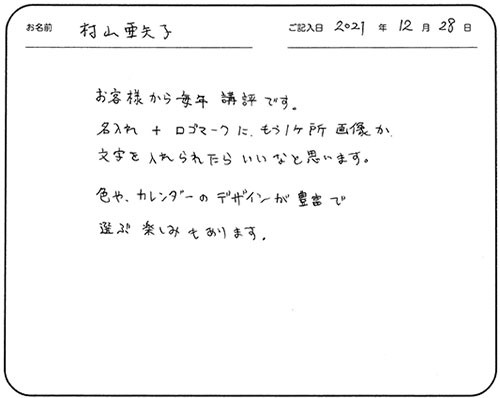 お名前 村山亜矢子 ご記入日 2021 年 12 月 28 日
お客様から毎年 講評です。
名入れ + ロゴマークに、もう1ヶ所 画像か、
文字を入れられたらいいなと思います。
色や、カレンダーのデザインが豊富で
選ぶ楽しみもあります。